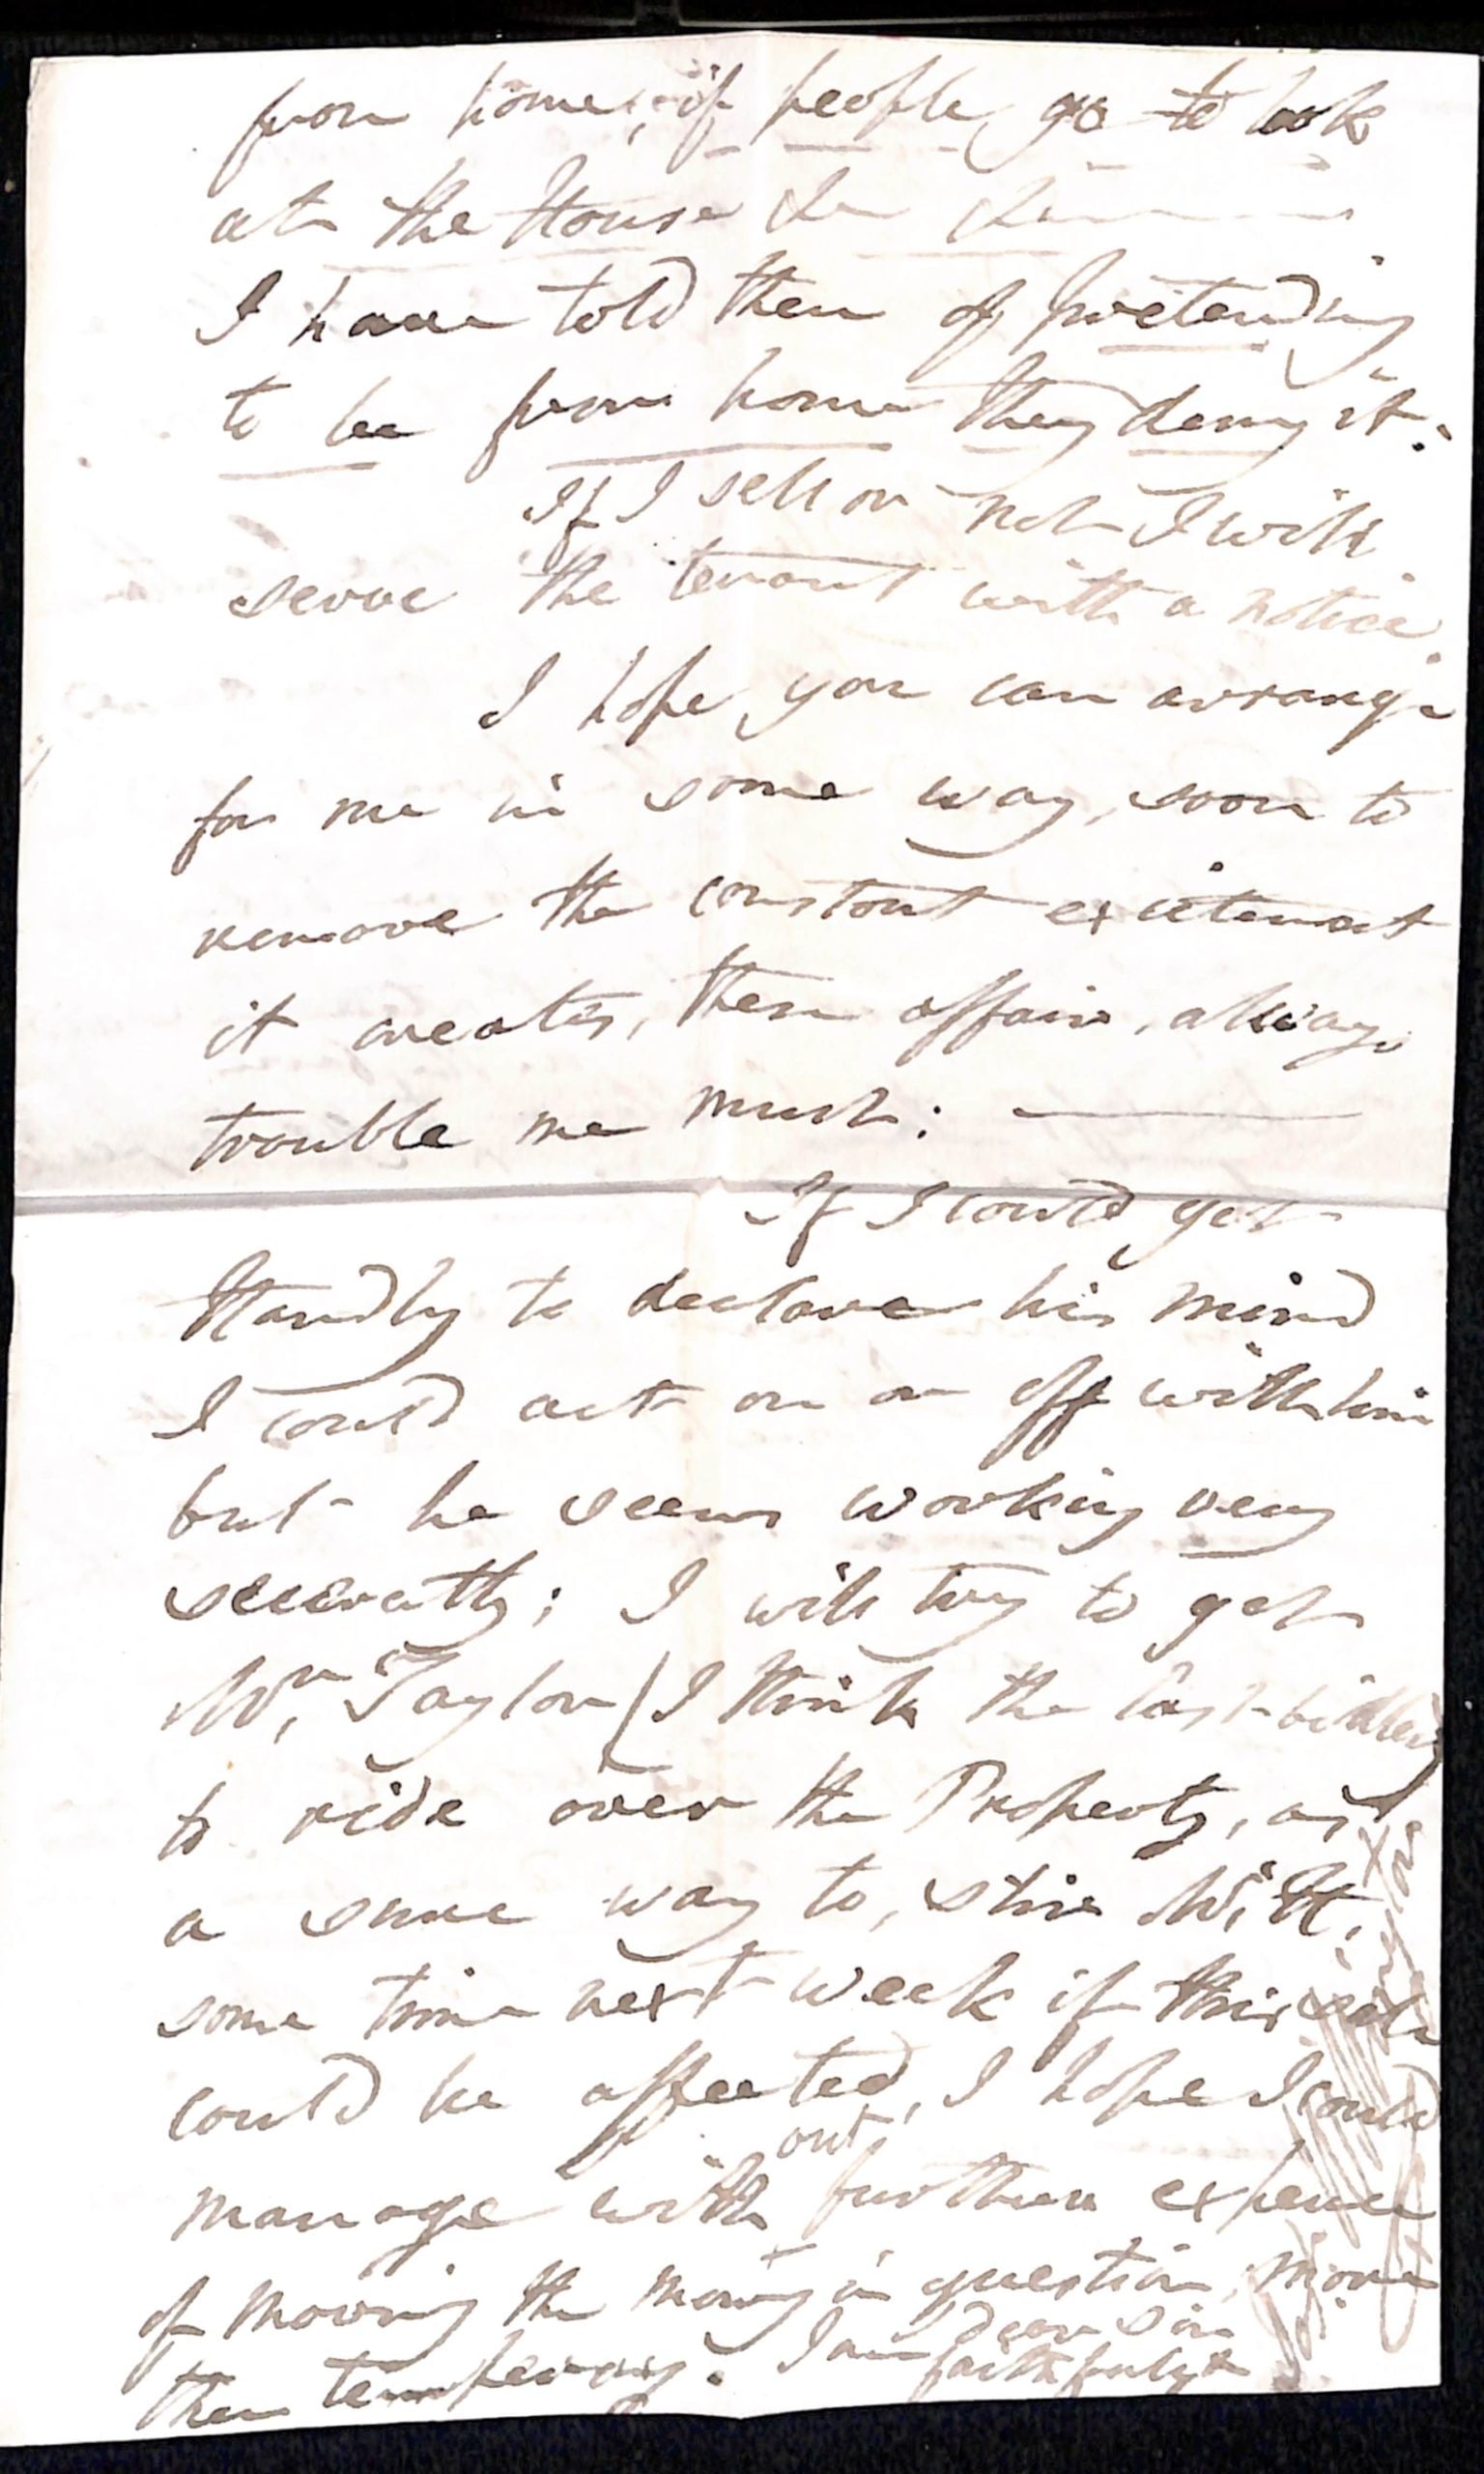 from home, if people go to look
at the House
I have told them of pretending
to be from home they deny it.
If I sell or not I will
serve the tenant with a notice
I hope you can arrange
for me in some way, soon to
remove the constant excitement
it creates, these affairs, always
trouble me much:
If I could get
Handly to declare his mind
I could act on or off with him
but he seems working very
seccreatly; I will try to get
Mr. Taylor (I think the last bidder)
to ride over the Property, as
a sure way to, stir Mr. H.
some time next week if this sale
could be affected, I hope I could
manage without further expence
of moving the money in question, more
then tempeiray. I am dear Sir
faithfuly